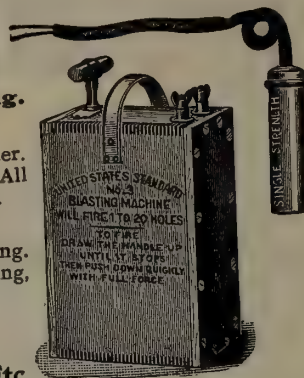 g.
er.
All
ng.
ng,
Etc
UNITED STATES STANDARD
NO. 3
BLASTING MACHINE
WILL FIRE 1 TO 20 HOLES
TO FIRE
DRAW THE HANDLE UP
UNTIL IT STOPS
THEN PUSH DOWN QUICKLY
WITH FULL FORCE
SINGLE STRENGTH